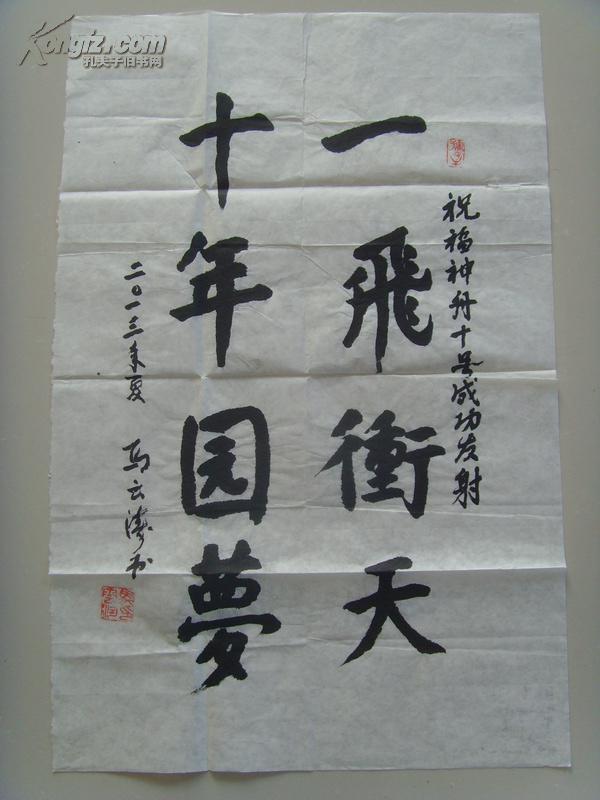 祝福神舟十号成功发射
一飛衝天
十年园夢
二〇一三年夏 馬云涛书
Kongfz.com
孔夫子旧书网